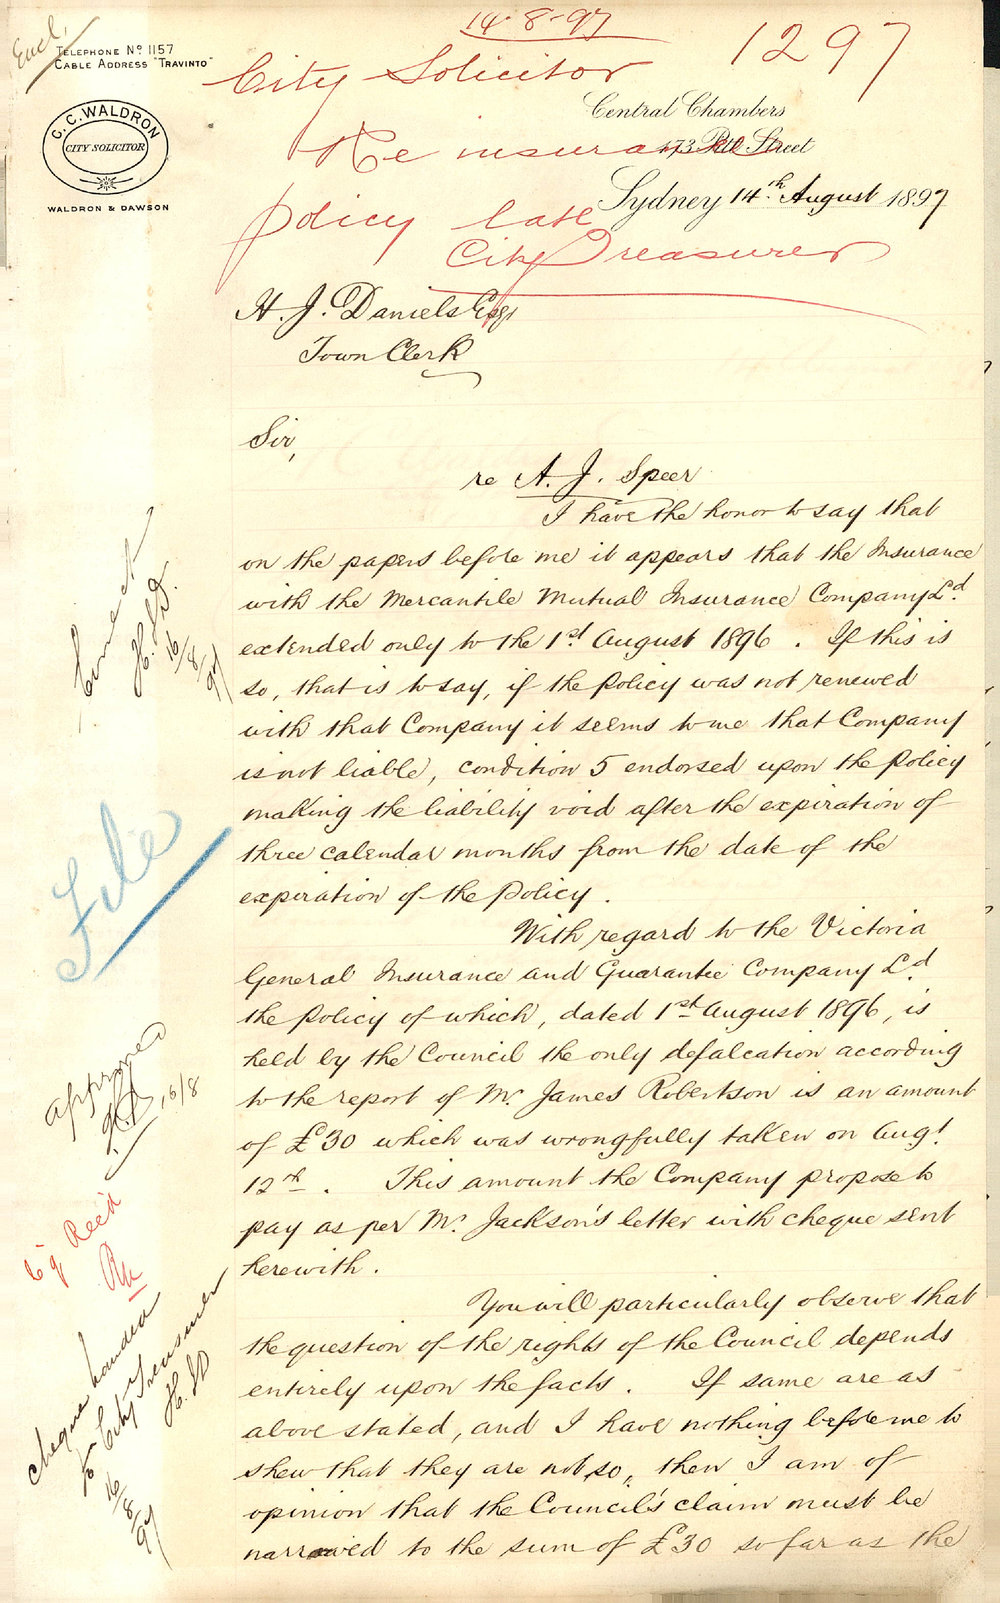 Encl.
14-8-97
1297
TELEPHONE No 1157
CABLE ADDRESS "TRAVINTO"
City Solicitor
C. C. WALDRON
CITY SOLICITOR
WALDRON & DAWSON
Central Chambers
Re insurance
173 Pitt Street
Sydney 14th August 1897
policy late
City Treasurer
H. J. Daniels Esqr
Town Clerk
Sir,
re A. J. Speer
I have the honor to say that
on the papers before me it appears that the Insurance
with the Mercantile Mutual Insurance Company Ld
extended only to the 1st August 1896. If this is
so, that is to say, if the Policy was not renewed
with that Company it seems to me that Company
is not liable, condition 5 endorsed upon the Policy
making the liability void after the expiration of
three calendar months from the date of the
expiration of the Policy.
With regard to the Victoria
General Insurance and Guarantee Company Ld
the Policy of which, dated 1st August 1896, is
held by the Council the only defalcation according
to the report of Mr James Robertson is an amount
of £30 which was wrongfully taken on Augt
12th. This amount the Company propose to
pay as per Mr Jackson's letter with cheque sent
herewith.
You will particularly observe that
the question of the rights of the Council depends
entirely upon the facts. If same are as
above stated, and I have nothing before me to
shew that they are not so, then I am of
opinion that the Council's claim must be
narrowed to the sum of £30 so far as the
H.J.D.
16/8/97
File
approved
16/8
Cq Rec'd
cheque handed
to City Treasurer
H.J.D
16/8/97